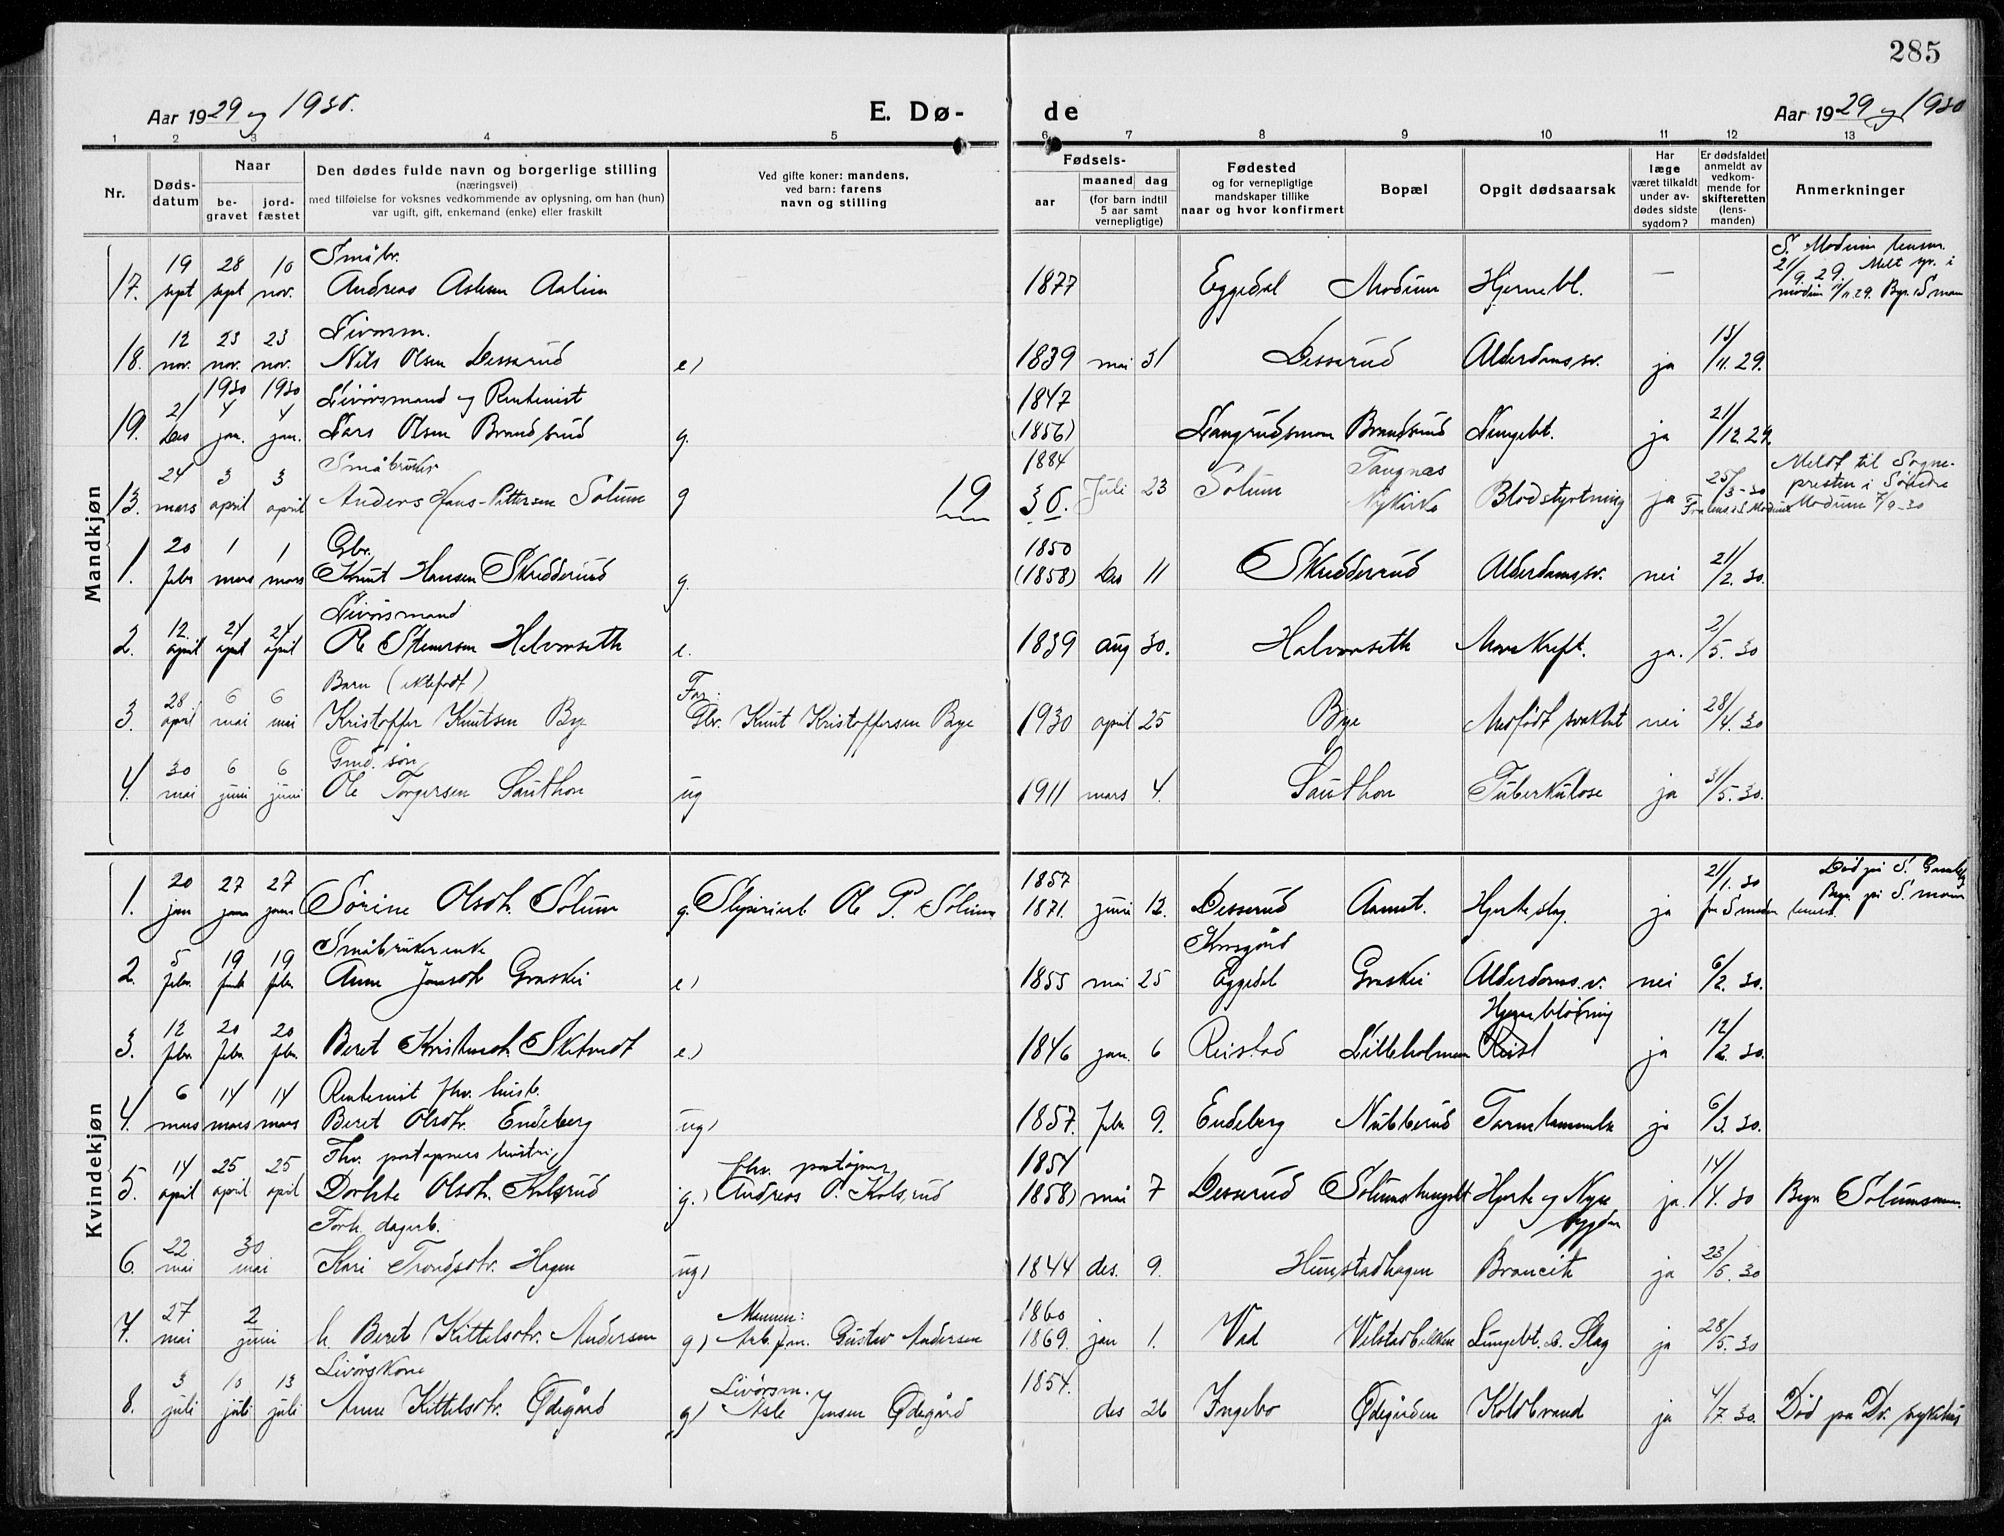 285
Aar 1929 og 1930.
E. Dø- de
Aar 1929 og 1930
1 2 3 4 5 6 7 8 9 10 11 12 13
Nr.
Døds-datum
Naar
be-gravet
jord-fæstet
Den dødes fulde navn og borgerlige stilling
(næringsvei)
med tilføielse for voksnes vedkommende av oplysning, om han (hun)
var ugift, gift, enkemand (enke) eller fraskilt
Ved gifte koner: mandens,
ved barn: farens
navn og stilling
Fødsels-
aar
maaned
dag
(for barn indtil
5 aar samt
vernepligtige)
Fødested
og for vernepligtige
mandskaper tillike
naar og hvor konfirmert
Bopæl
Opgit dødsaarsak
Har
læge
været tilkaldt
under av-
dødes sidste
sygdom?
Er dødsfaldet
anmeldt av
vedkom-
mende for
skifteretten
(lens-
manden)
Anmerkninger
Mandkjøn
17. 19 sept 28 sept 10 nov. Småbr. Andreas Aslesen 1877 Eggedal Modum Hjernebl. —
S. Modum lensm.
21/9 29. Melt spr. i
18. 12 nov. 23 nov. 23 nov. Livørsm. Nils Olsen Desserud e) 1839 mai 31 Desserud Aldersdomssv. ja 13/11. 29.
19. 21 Des 1930 4 jan. 1930 4 jan. Livørsmand og Rentenist Lars Olsen Brandsrud g. 1847 (1856) Langrudsmoen Brandsrud Lungebt. ja 21/12 29.
13. 24 mars 3 april 3 april Småbruker Anders Hans-Pettersen Solum g 19 30. 1884 Juli 23 Solum Tangnes Nykirke Blodstyrtning ja 25/3-30
Meldt til Sogne-
presten i Søndre
Modum 7/9-30
1. 20 febr 1 mars 1 mars Gbr. Knut Hansen Skredderrud g. 1850 (1858) Des 11 Skredderrud Alderdomssv. nei 21/2. 30.
2. 12. april 24 april 24 april Livørsmand Ole Stenersen Halvorseth e. 1839 aug 30. Halvorseth Mavekreft. ja. 2/5. 30
3. 28 april 6 mai 6 mai Barn (ektefødt) Kristoffer Knutsen Bye Far: Gbr. Knut Kristoffersen Bye 1930 april 25 Bye Medfødt svakhet nei 28/4. 30
4. 30 mai 6 juni 6 juni Gmd. søn Ole Torgersen Sauthon ug 1911 mars 4. Sauthon Tuberkulose ja 31/5. 30.
Kvindekjøn
1. 20 jan 27 jan 27 jan Sørine Olsdtr. Solum g. Ole P. Solum 1857 1871. juni 12. Desserud Aamot. Hjerteslag. ja 21/1. 30
2. 5 febr. 19 febr 19 febr. Småbrukerenke Anne Jonsdtr Graskei e) 1855 mai 25 Eggedal Graskei Alderdoms.v. nei 6/2. 30.
3. 12 febr. 20 febr. 20 febr. Beret e.) 1846 jan. 6 Reistad Lilleholmen Hjerneblødning ja 12/2. 30.
4. 6 mars 14 mars 14 mars Rentenist fhv. Beret Olsdtr. Endeberg ug) 1857. febr 9. Endeberg Nubberud ja 6/3. 30.
5. 14 april 25 april 25 april Fhv. postapners hustru Dorthe Olsdtr. Kolsrud g.) fhv. postapner Andreas O. Kolsrud 1854 1858) mai 7 Desserud Hjerte og Nyre sygdom ja. 14/4. 30
6. 22 mai 30 mai Forh. dagarb. Kari Trondsdtr. Hagen ug) 1844 des. 9. Hunstadhagen Broncit ja 23/5. 30
7. 27 mai 2 juni h. Beret Kittelsdtr. Andersen g) Mannen: Arb.fm. Gustav Andersen 1860 1869. jan 1. Vad Lungebt. o. Slag ja 28/5. 30
8. 3 juli 13 juli 13 juli Livørskone Anne Kittelsdtr. Ødegård g) Livørsm. Asle Jensen Ødegård 1854. des 26 Ingebo Ødegården Koldbrand ja 4/7. 30. Død på Dr. sykehus